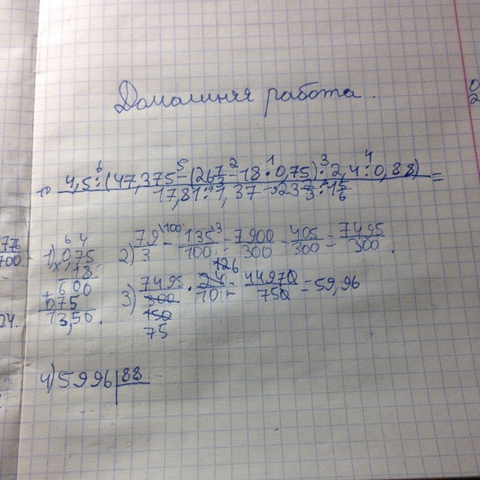 Домашняя работа.
4,5:(47,375-(26 1/3-18·0,75)·2,4:0,88)
17,81:1,37-23 2/3:1 5/6 =
1) 0,75
18
+ 600
075
13,50.
2) 79/3 - 135/100 = 7900/300 - 405/300 = 7495/300.
3) 7495/300 · 24/10 = 44970/750 = 59,96
150
75
4) 5996|88